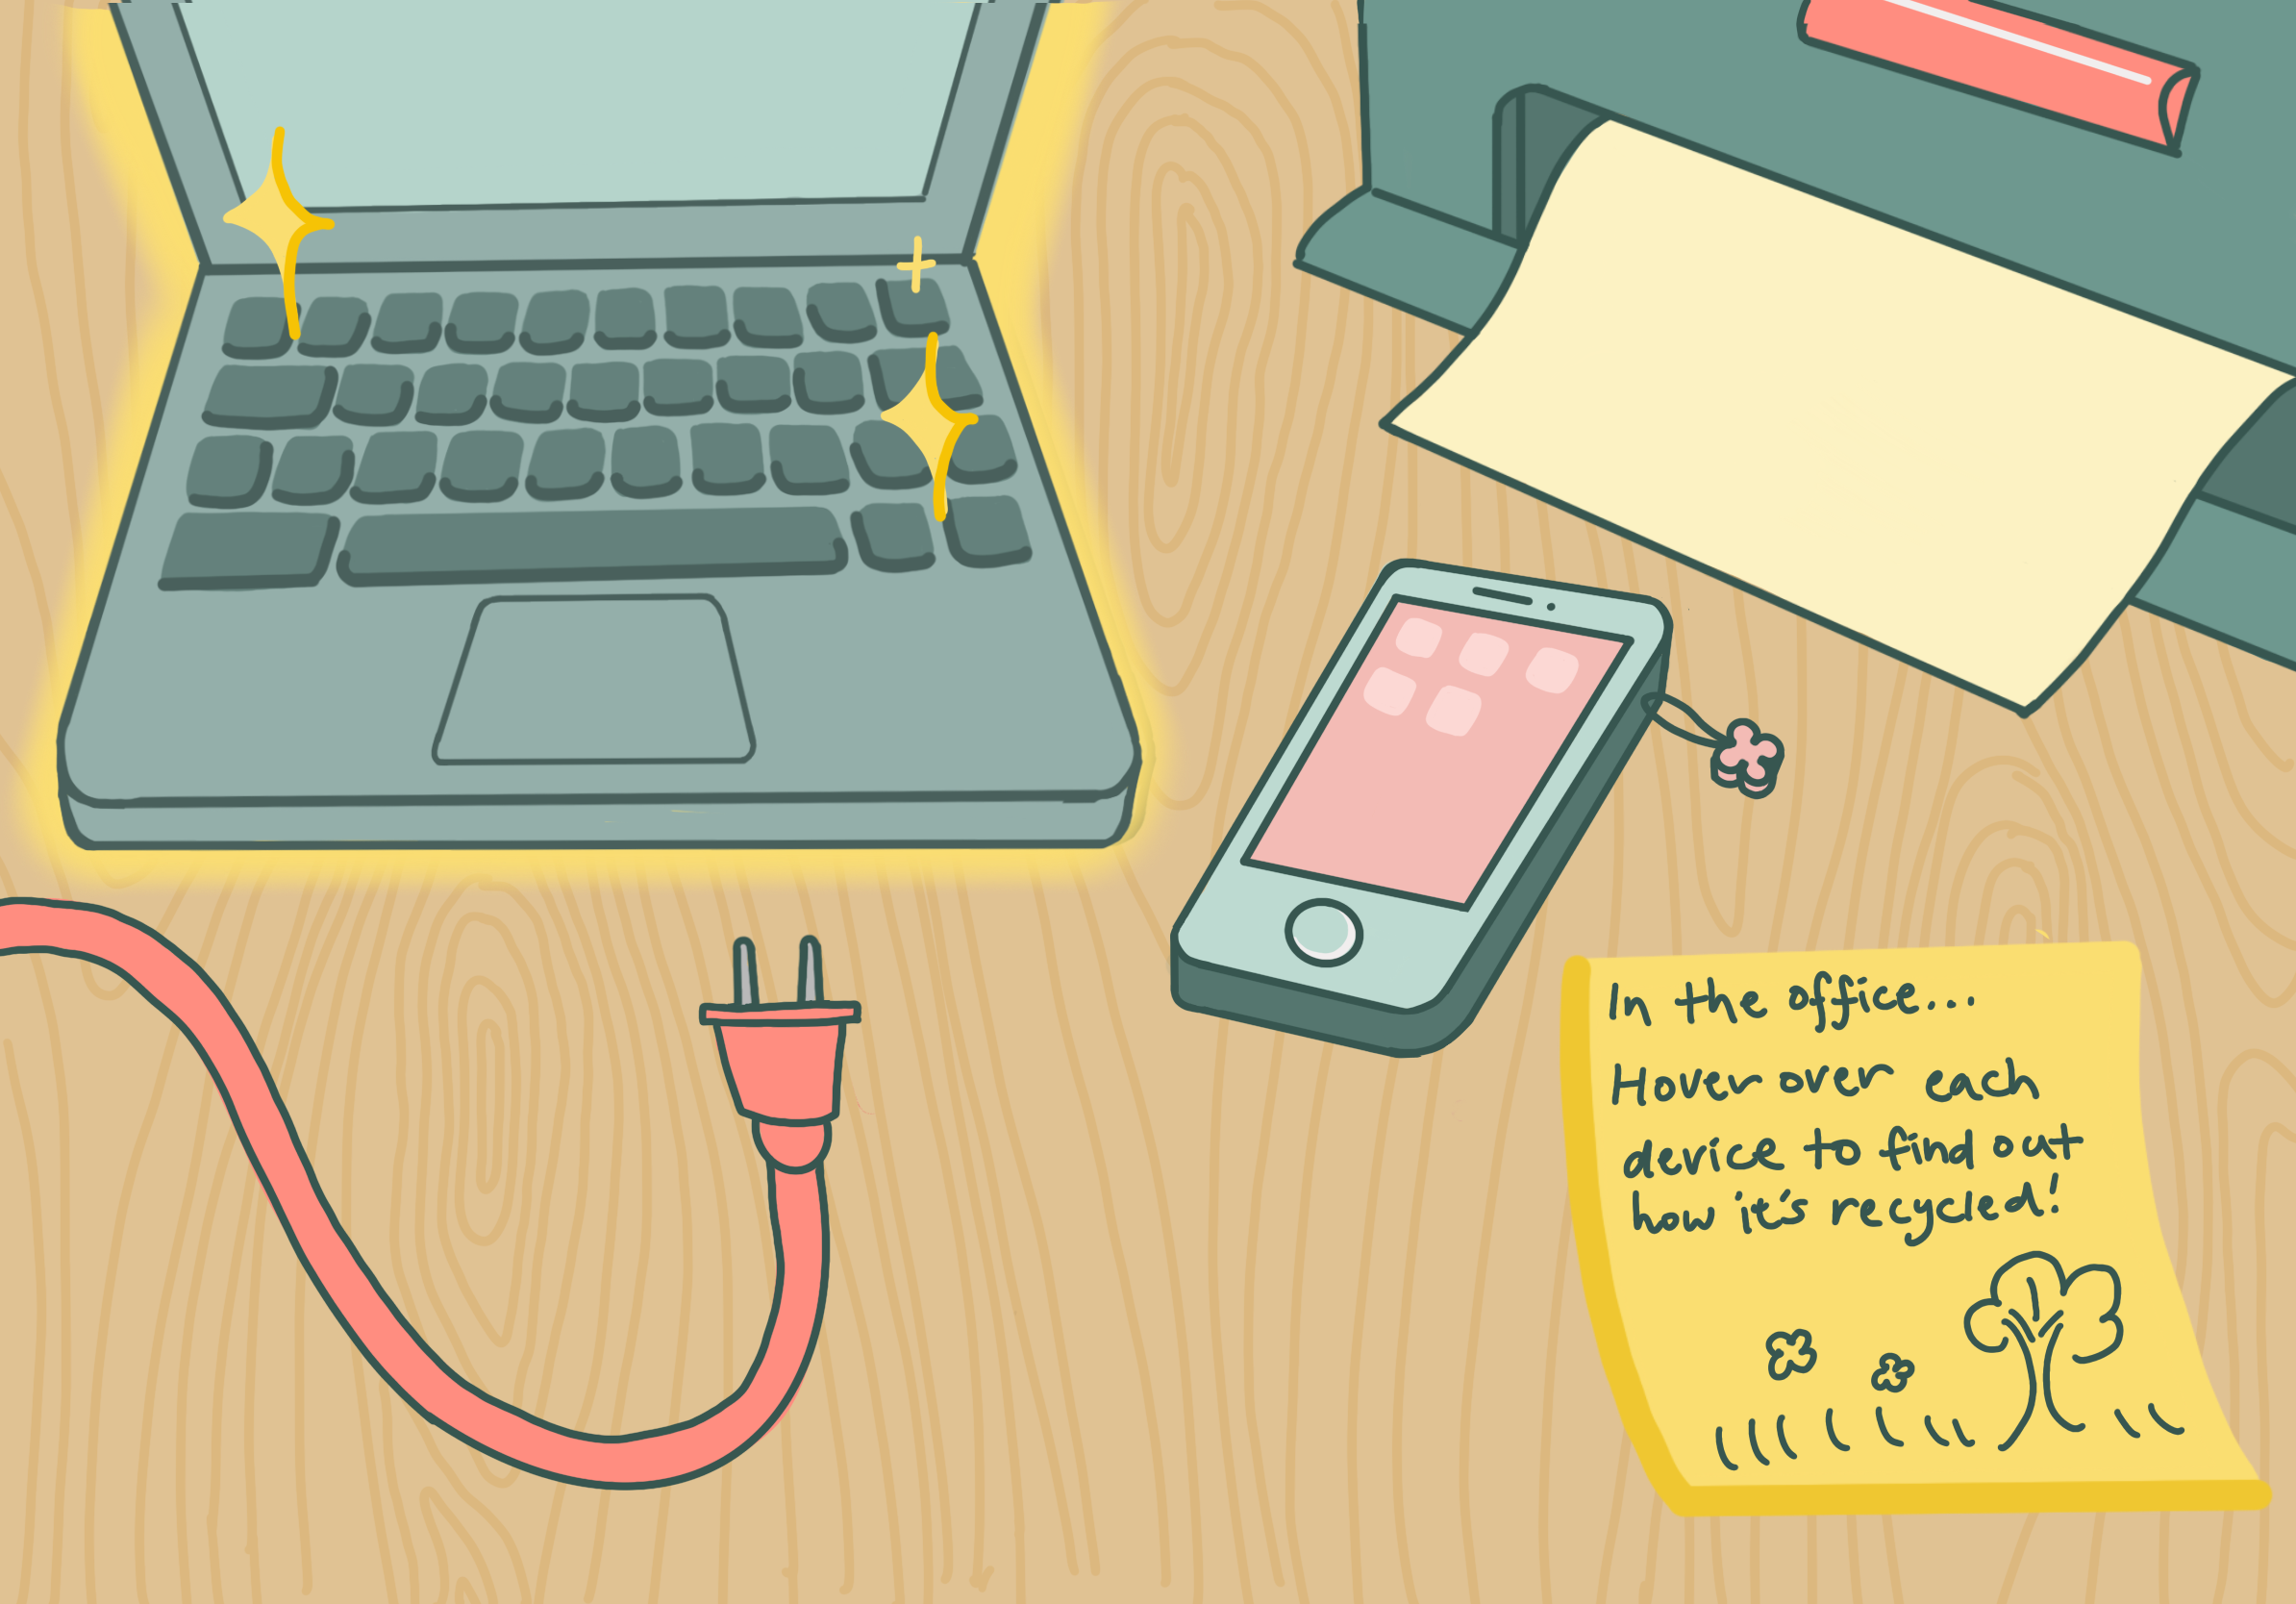 In the office...
Hover over each
device to find out
how it's recycled!